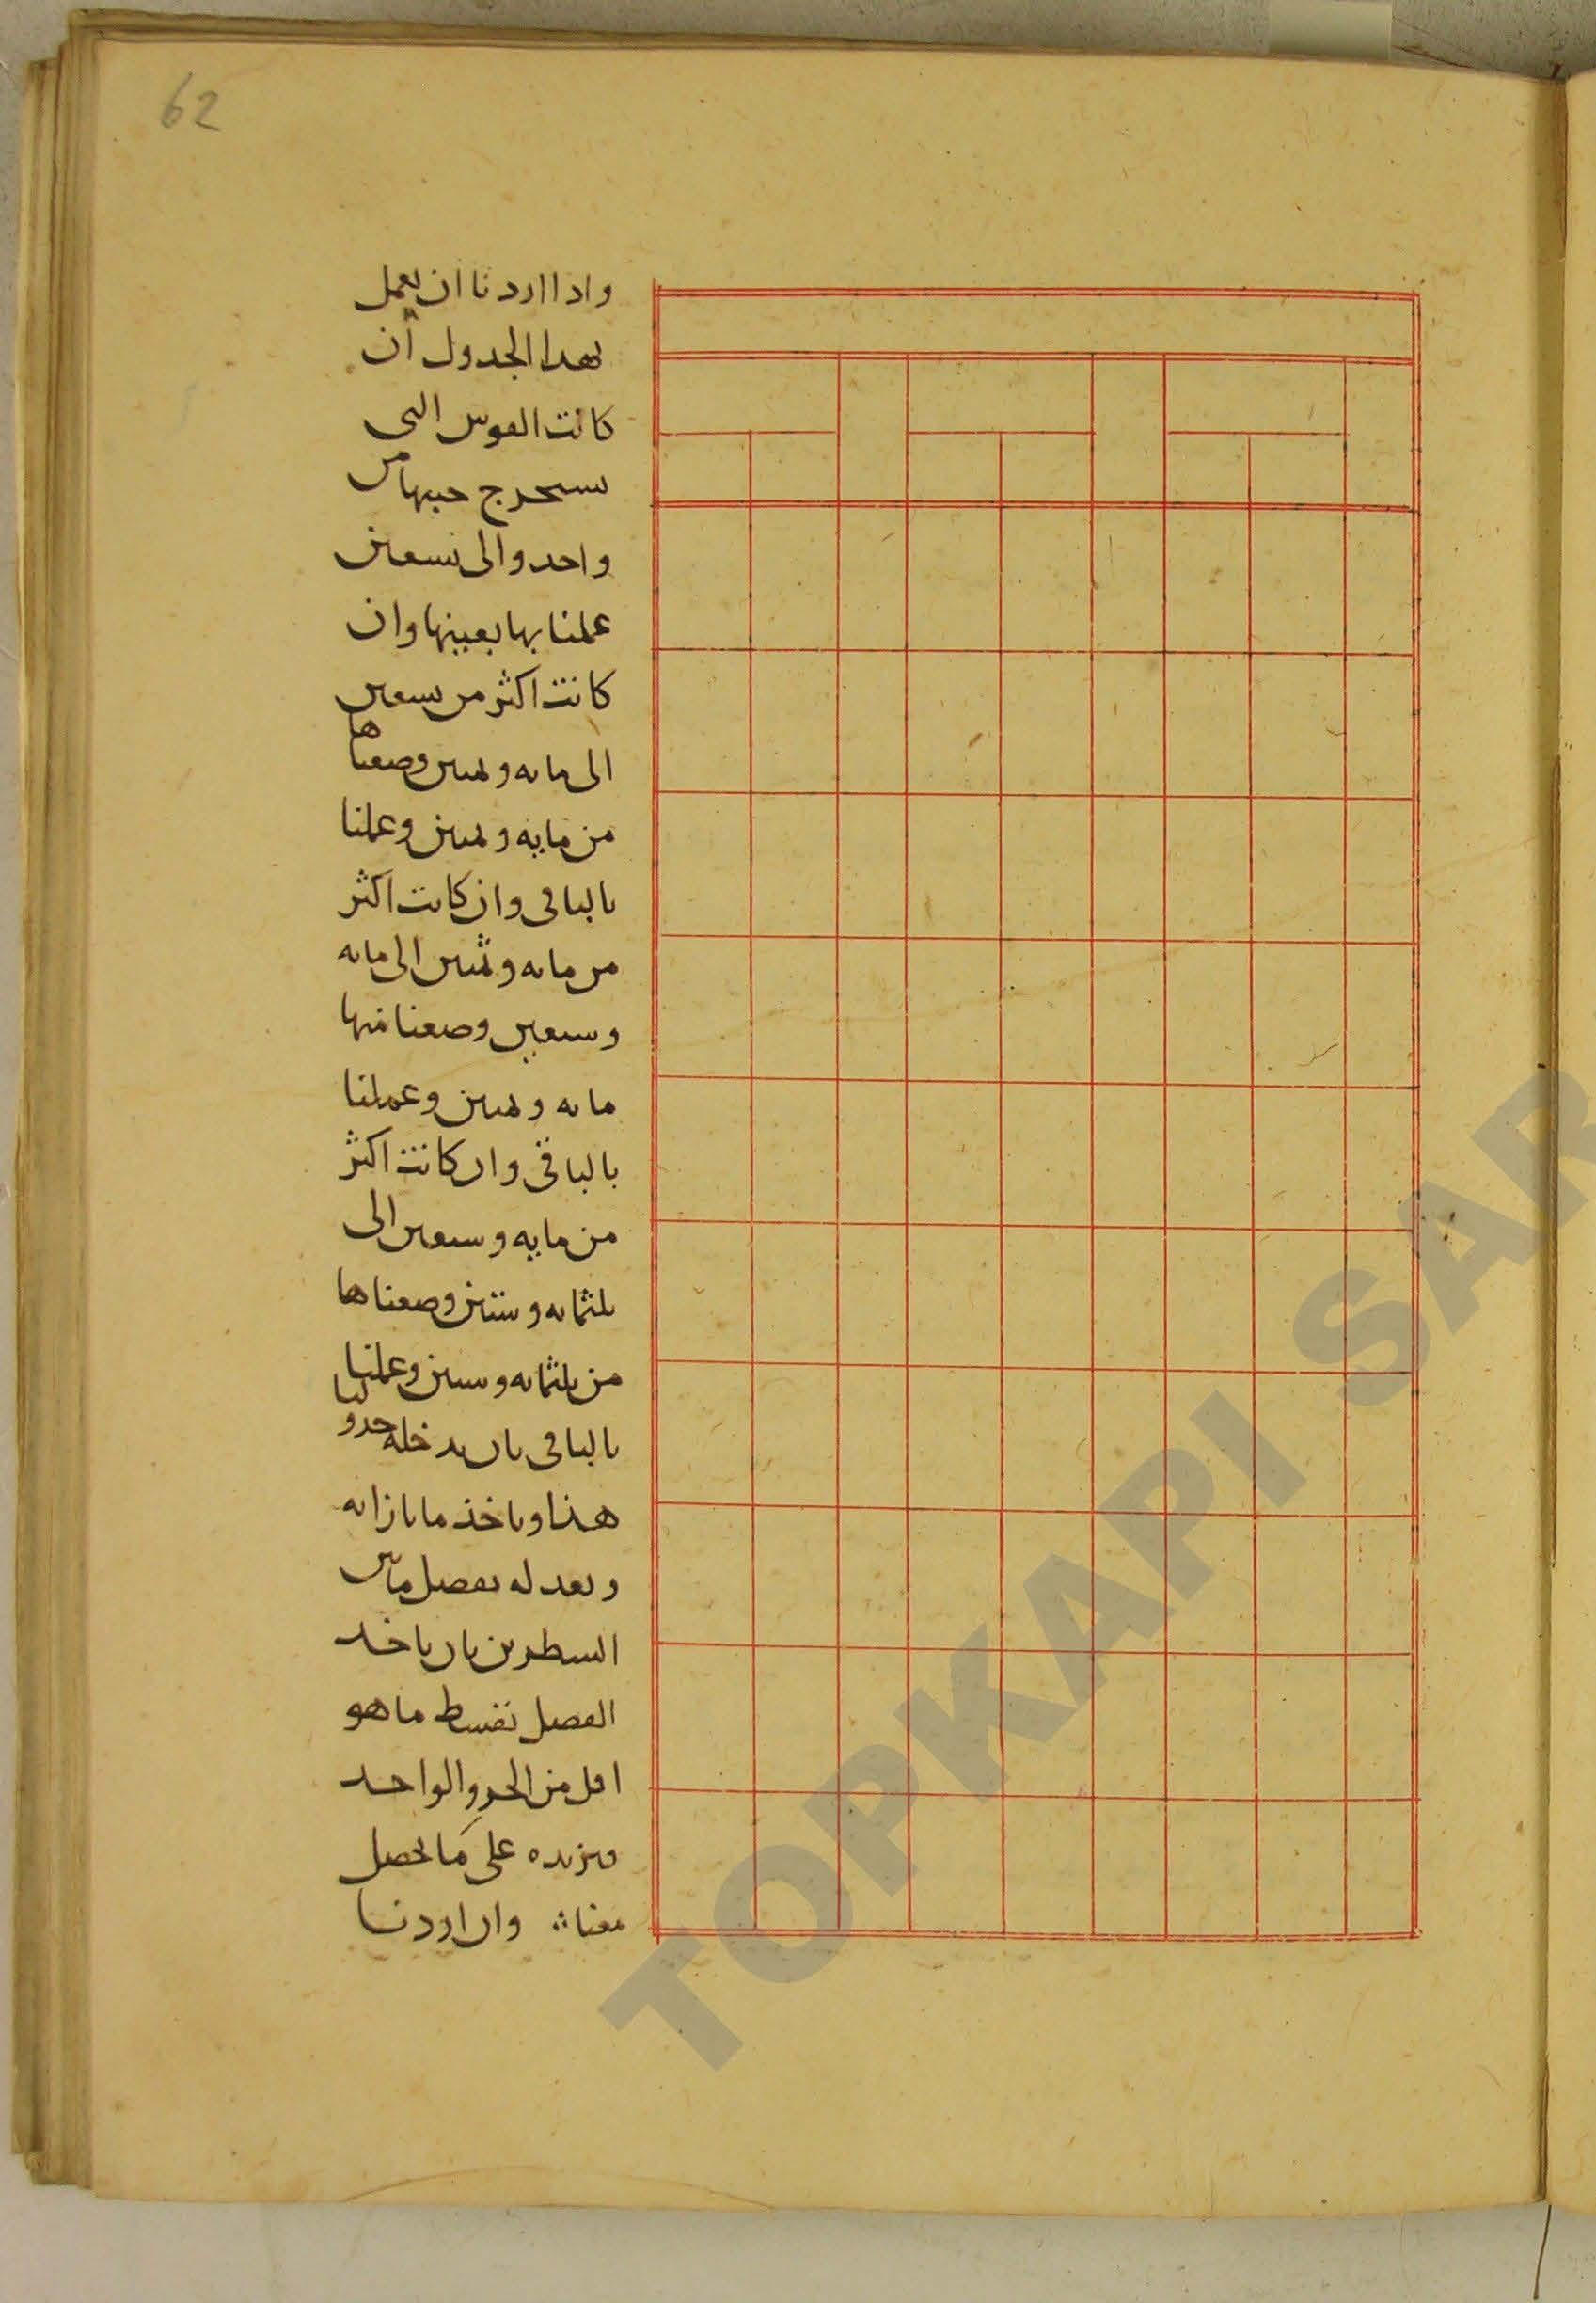 62
واذا اردنا ان نعمل
بهذا الجدول فان
كانت القوس التى
نستخرج جيبها من
واحد والى تسعين
عملنا بها بعينها وان
كانت اكثر من تسعين
الى مايه وثمنين وضعناها
من مايه وثمنين وعملنا
بالباقى وان كانت اكثر
من مايه وثمنين الى مايه
وسبعين وضعنا منها
مايه وثمنين وعملنا
بالباقى وان كانت اكثر
من مايه وسبعين الى
ثلثمايه وستين وضعناها
من ثلثمايه وستين وعملنا
بالباقى بان ندخله جدولنا
هذا وناخذ ما بازائه
ونعدله بفضل ما بين
السطرين بان ناخذ
الفضل بقسط ما هو
اقل من الجزو الواحد
ونزيده على ما يحصل
معنا وان اردنا
TOPKAPI SAR